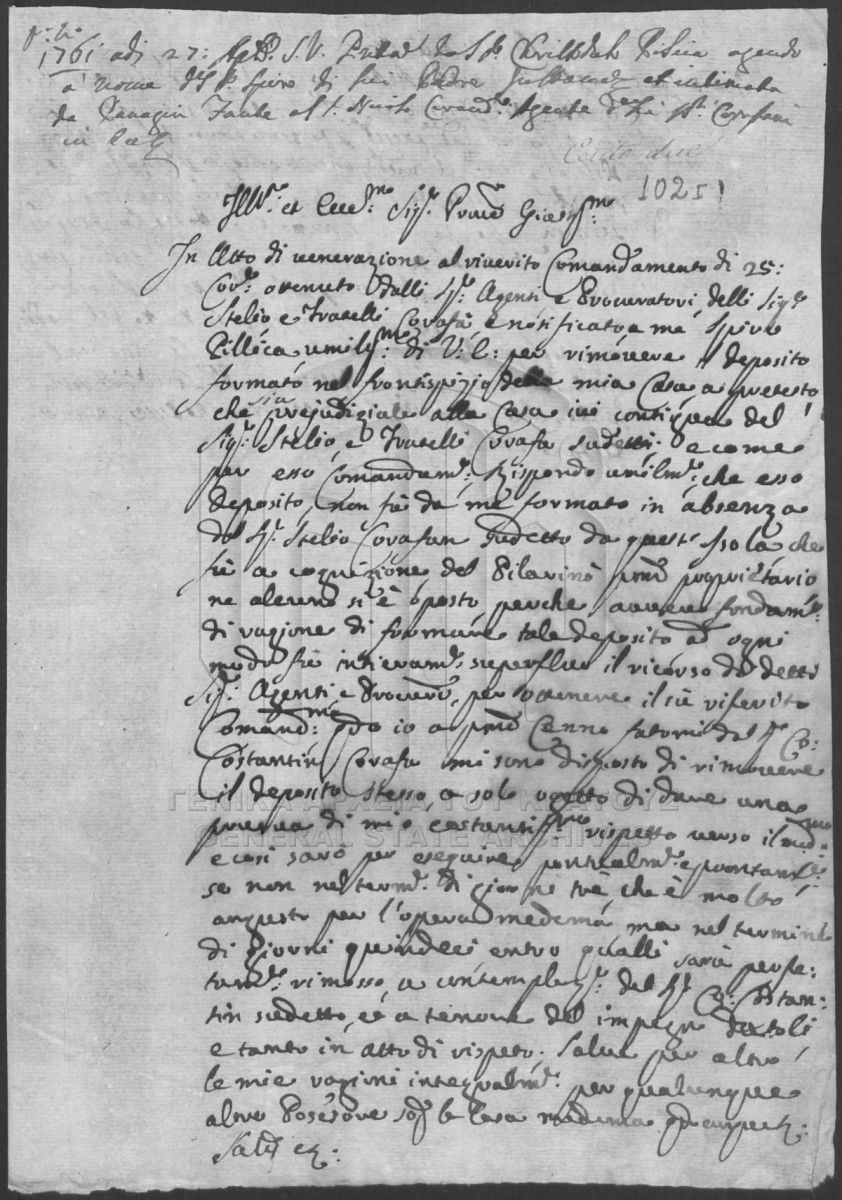 1761 adì 27: S.V. Pilica agendo
à nome del Spiro di lui Padre et intimata
da Panagin al Agente
in
Cento due
1021
Ill.mo et Ecc.mo Sig.r Prov.r
In Atto di venerazione al riverito Comandamento di 25:
Cor.e ottenuto dalli SS.ri Agenti e Procuratori delli Sig.ri
Stelio e Fratelli Corafà e notificato a me Spiro
Pillica umiliss.mo di V: E: per rimovere il deposito
formato nel frontispizio della mia Casa a pretesto
che sia prejudiziale alla Casa ivi contigua del
Sig.r Stelio, e Fratelli Corafà sudetti: e come
per esso Comandam.to Rispondo umilm.te che esso
deposito, non fù da me formato in absenza
del S.r Stelio Corafan sudetto da quest'Isola che
fù a cognizione del Pilarinò proprietario
ne alcuno si è oposto perche aveva fondam.to
di ragione di formare tale deposito ad ogni
modo fù intieram.te superfluo il ricorso da detti
SS.ri Agenti e Procur.ri per ottenere il sù riferito
Comand.mo io a Cenno fatomi dal S.r Co:
Costantin Corafà mi sono disposto di rimovere
il deposito stesso, a solo ogetto di dare una
prova di mio costantiss.mo rispetto verso il med.mo
e così sarò per eseguire pontualm.te e prontam.te
se non nel term.e di giorni trè, che è molto
angusto per l'opera medema, ma nel termine
di giorni quindeci entro quali sarà perfe:
tam.te rimosso, a contemplaz.e del S.r Co: Costan:
tin sudetto, e a tenore del impegno
e tanto in atto di rispeto. Salve per altro
le mie ragioni integralm.te per qualunque
altro Posesore sop.a la Casa medema
Salv
ΓΕΝΙΚΑ ΑΡΧΕΙΑ ΤΟΥ ΚΡΑΤΟΥΣ
GENERAL STATE ARCHIVES